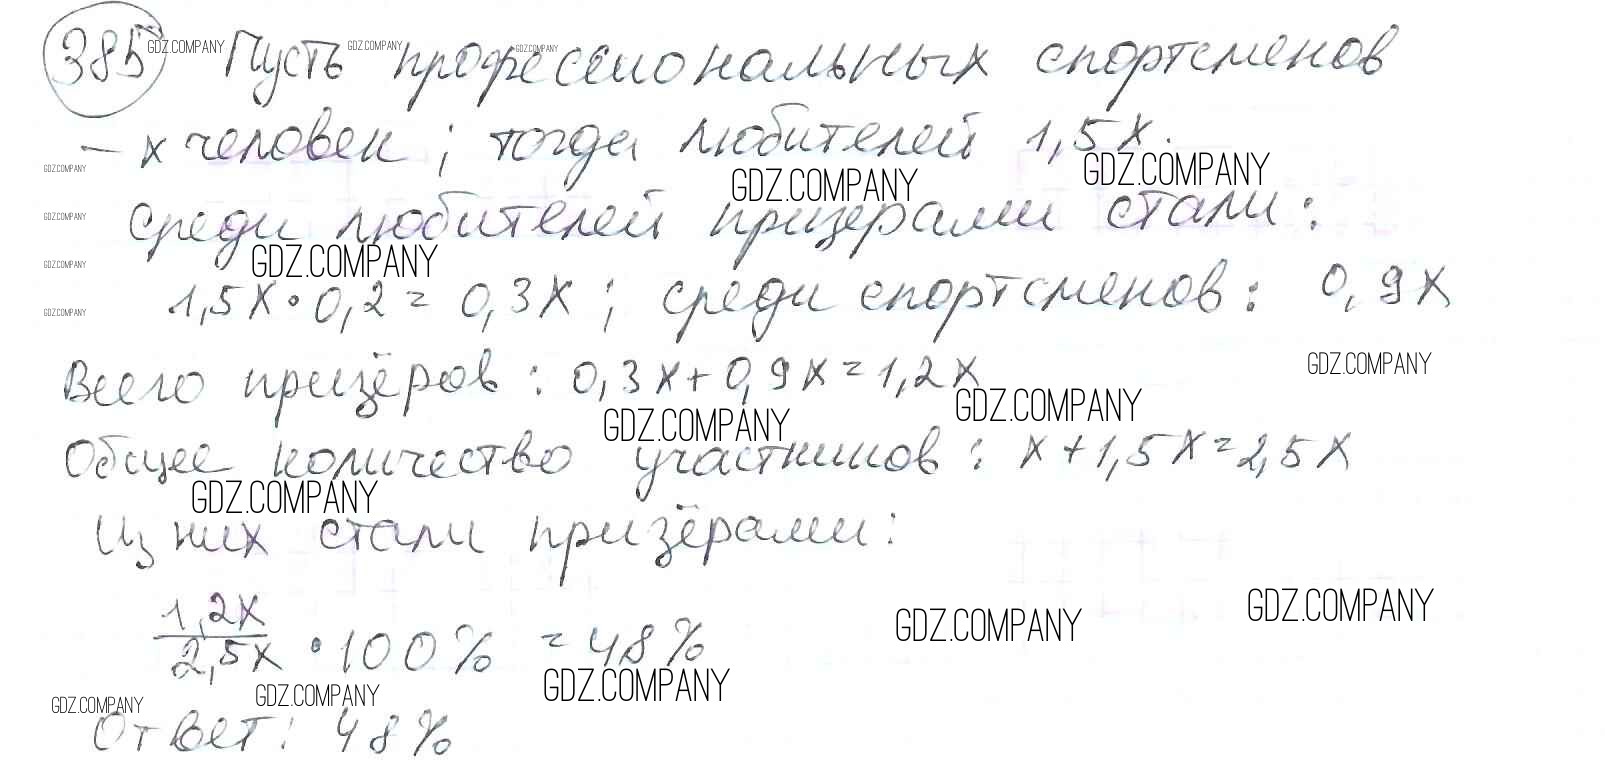 385 GDZ.COMPANY GDZ.COMPANY GDZ.COMPANY Пусть профессиональных спортсменов
– х человек; тогда любителей 1,5х.
GDZ.COMPANY GDZ.COMPANY GDZ.COMPANY
GDZ.COMPANY Среди любителей призерами стали:
GDZ.COMPANY GDZ.COMPANY
1,5х·0,2 = 0,3х; среди спортсменов: 0,9х
GDZ.COMPANY
Всего призёров: 0,3х+0,9х=1,2х GDZ.COMPANY
GDZ.COMPANY GDZ.COMPANY
Общее количество участников: х+1,5х=2,5х
GDZ.COMPANY
Из них стали призёрами:
1,2х/2,5х · 100% = 48%
GDZ.COMPANY GDZ.COMPANY
GDZ.COMPANY GDZ.COMPANY GDZ.COMPANY
Ответ: 48%